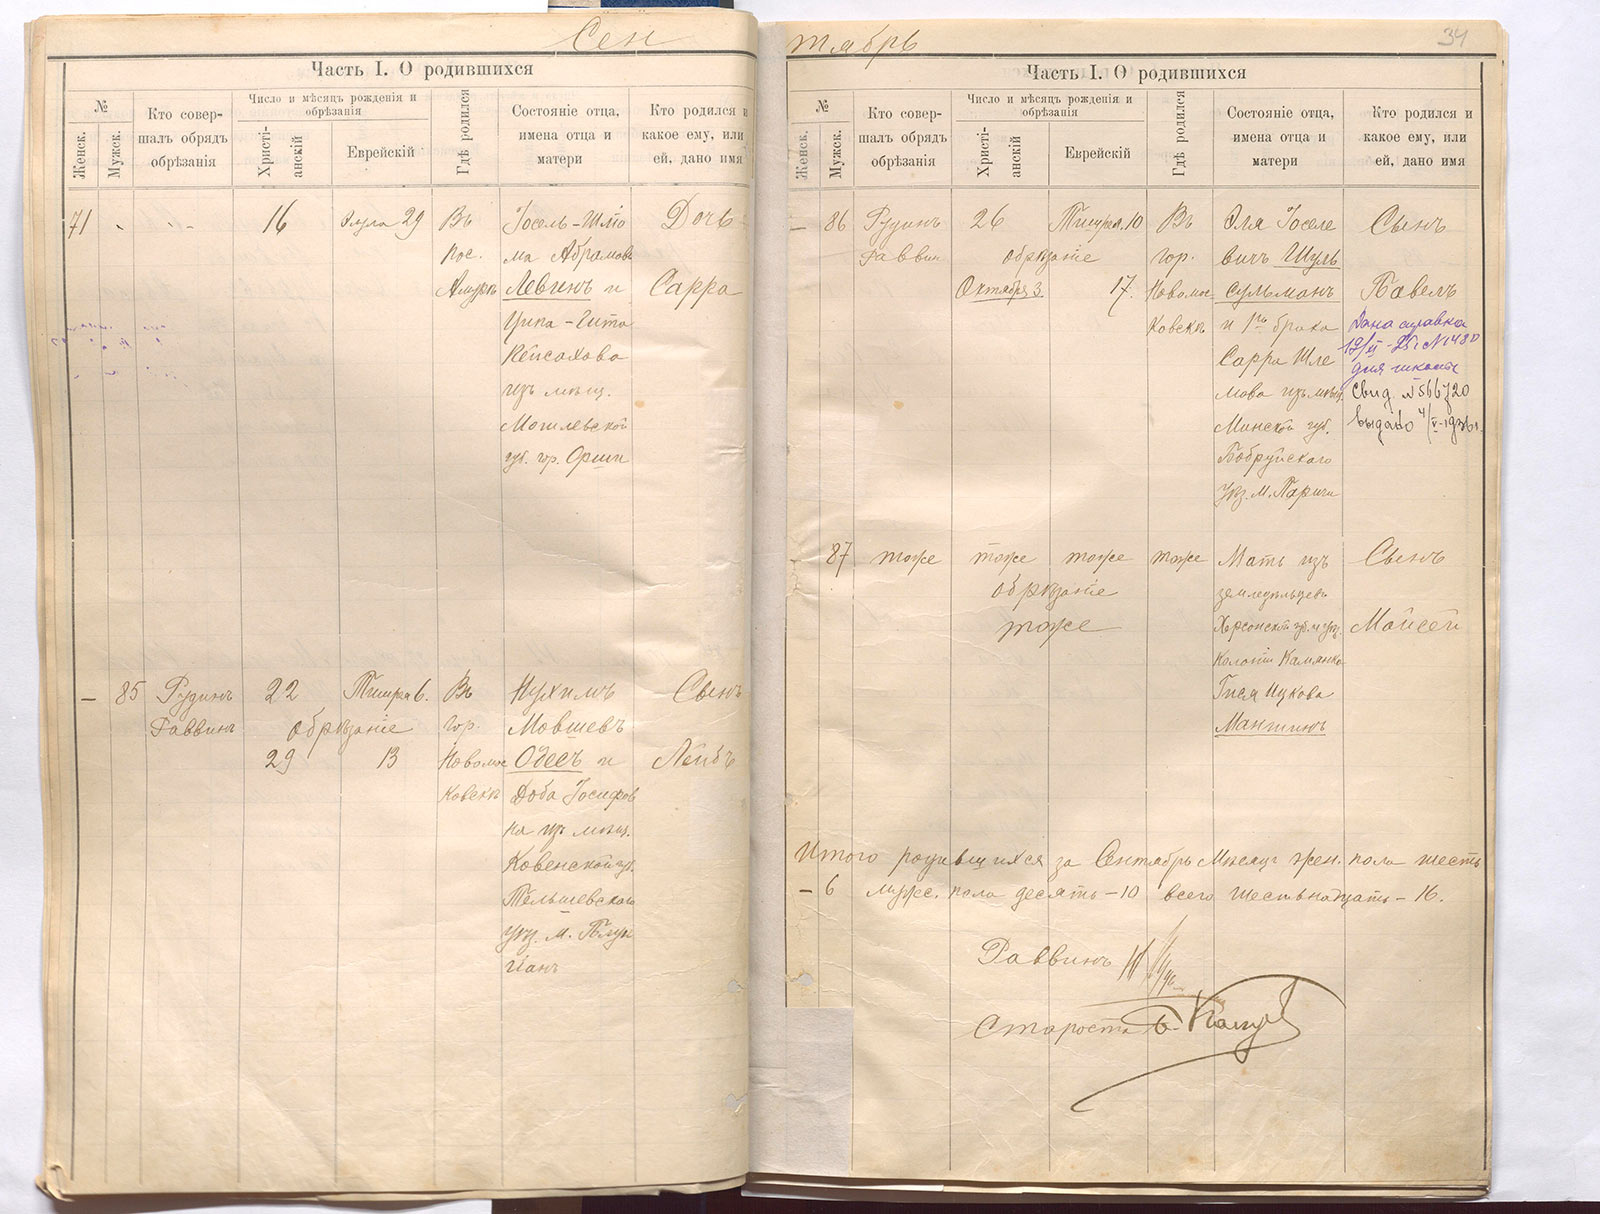 Сен
Часть I. О родившихся
№
Женск.
Мужск.
Кто совер-
шалъ обрядъ
обрѣзанія
Число и мѣсяцъ рожденія и
обрѣзанія
Христі-
анскій
Еврейскій
Гдѣ родился
Состояніе отца,
имена отца и
матери
Кто родился и
какое ему, или
ей, дано имя
71
16
Элула 29
Въ
пос.
Амуръ
Іосель-Шліо
ма Абрамовъ
Левинъ и
Ципа-Гита
Пейсахова
изъ мѣщ.
Могилевской
губ. гор. Орши
Дочь
Сарра
85
Рудинъ
Раввинъ
22
Тишри 6.
обрѣзаніе
29
13
Въ
гор.
Новомос
ковскѣ
Нухимъ
Мовшевъ
Одесъ и
Доба Іосифов
на изъ мѣщ.
Ковенской гу.
Тельшевскаго
уѣз. м. Плун
гянъ
Сынъ
Лейбъ
тябрь
34
Часть I. О родившихся
№
Женск.
Мужск.
Кто совер-
шалъ обрядъ
обрѣзанія
Число и мѣсяцъ рожденія и
обрѣзанія
Христі-
анскій
Еврейскій
Гдѣ родился
Состояніе отца,
имена отца и
матери
Кто родился и
какое ему, или
ей, дано имя
86
Рудинъ
Раввин
26
Тишрея 10
обрѣзаніе
Октября 3
17.
Въ
гор.
Новомос
ковскѣ
Эля Іоселе
вичъ Шуль
сульманъ
и 1го брака
Сарра Шле
мова изъ мѣщ.
Минской губ.
Бобруйскаго
уѣз. м. Паричи
Сынъ
Павелъ
Дана справка
для школы
Свид. № 566720
выдано 4/V-1936 г.
87
тоже
тоже
тоже
тоже
обрѣзаніе
тоже
Мать изъ
земледѣльцевъ
Херсонской губ. и уѣз.
Колоніи Калинка
Гися Ицкова
Мантинъ
Сынъ
Мойсей
Итого родившихся за Сентябрь Мѣсяцъ жен. пола шесть
- 6 мужс. пола десять - 10 всего шестьнадцать - 16.
Раввинъ
Староста